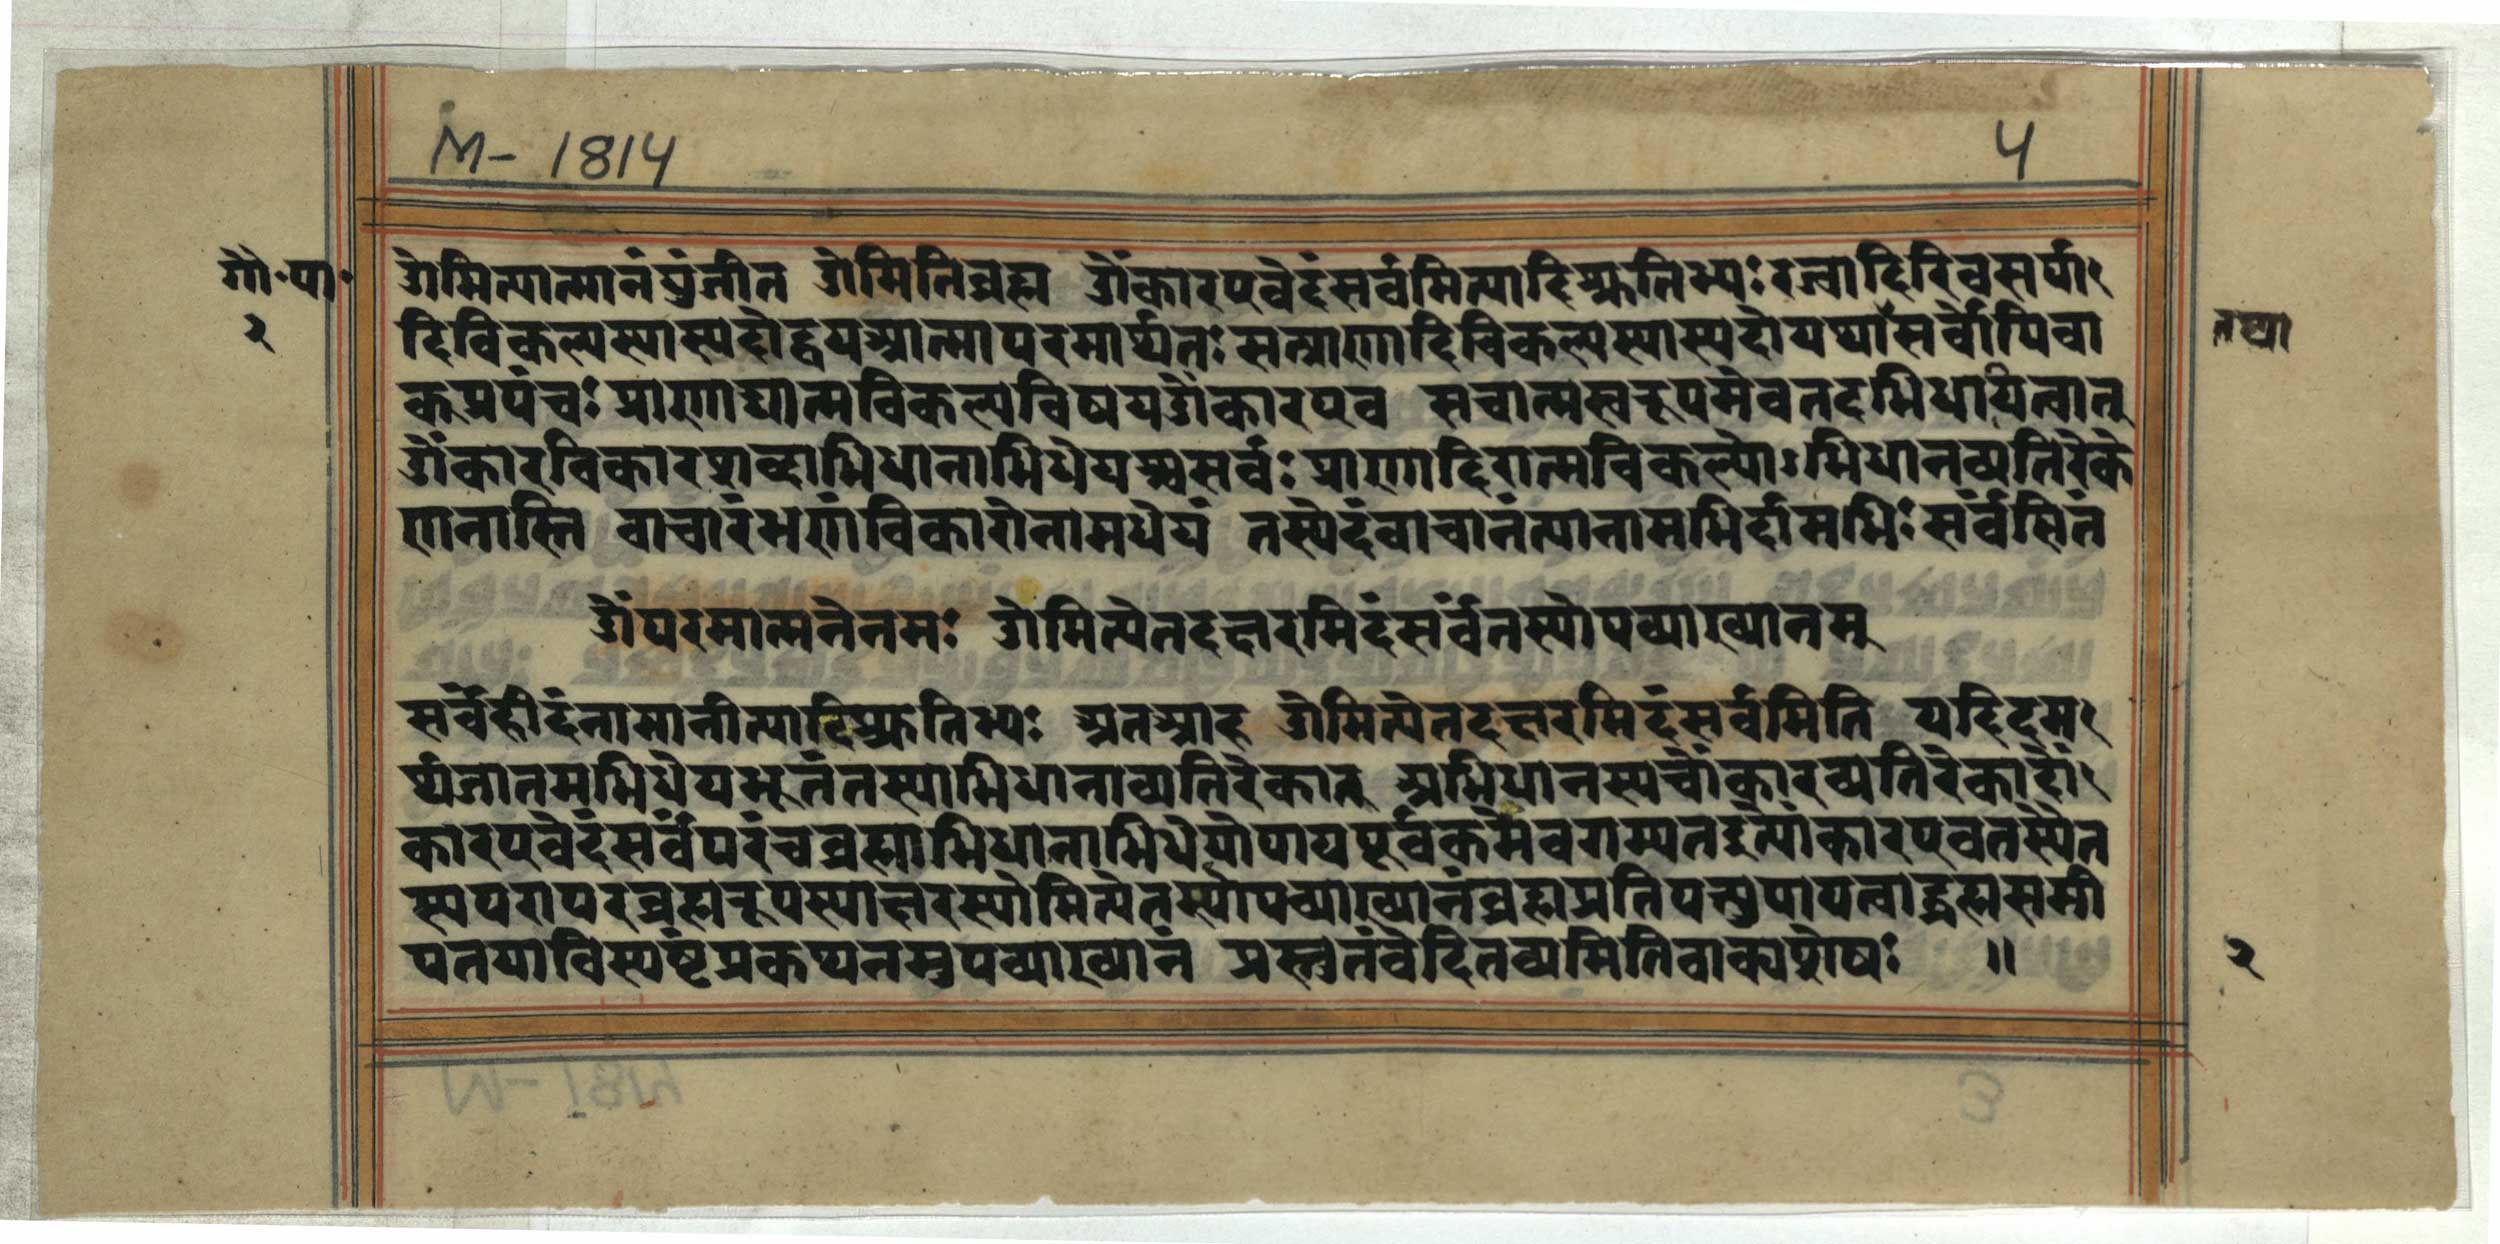 M- 1814
५
गौ॰पा॰
२
ओमित्यात्मानंयुंजीत ओमितिब्रह्म ओंकारएवेदंसर्वमित्यादिश्रुतिभ्यः रज्वादिरिवसर्पा
दिविकल्पस्यास्पदोद्वयआत्मापरमार्थतः सन्प्राणादिविकल्पस्यास्पदोयथासर्वोपिवा
तथा
क्प्रपंचः प्राणाद्यात्मविकल्पविषयओंकारएव सचात्मस्वरूपमेवतदभिधायित्वात्
ओंकारविकारशब्दाभिधानाभिधेयश्चसर्वः प्राणादिरात्मविकल्पोऽभिधानव्यतिरेके
णनास्ति वाचारंभणंविकारोनामधेयं तस्येदंवाचानंत्यानामभिर्दामभिः सर्वंसितं
ओंपरमात्मनेनमः ओमित्येतदक्षरमिदंसर्वंतस्योपव्याख्यानम्
सर्वंहीदंनामानीत्यादिश्रुतिभ्यः अतआह ओमित्येतदक्षरमिदंसर्वमिति यदिदम
र्थजातमभिधेयभूतंतस्याभिधानाव्यतिरेकात् अभिधानस्यचोंकारव्यतिरेकादों
कारएवेदंसर्वंपरंचब्रह्माभिधानाभिधेयोपायपूर्वकमेवगम्यतइत्योंकारएवतस्यैत
स्यपरापरब्रह्मरूपस्याक्षरस्योमित्येतस्योपव्याख्यानंब्रह्मप्रतिपत्त्युपायत्वाद्ब्रह्मसमी
पतयाविस्पष्टंप्रकथनमुपव्याख्यानं प्रस्तुतंवेदितव्यमितिवाक्यशेषः ॥
२